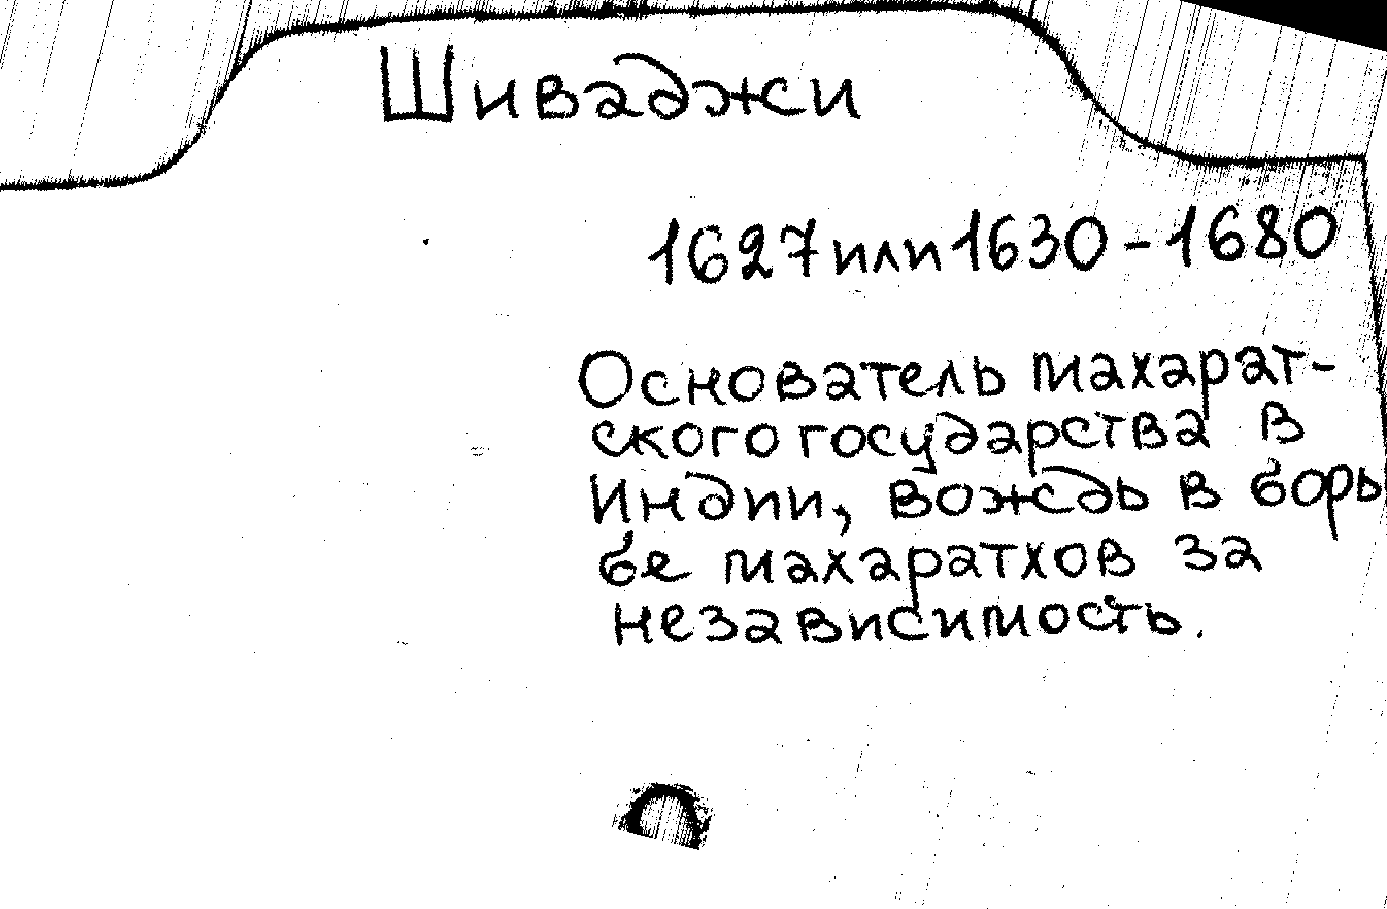 Шиваджи
1627 или 1630 - 1680
Основатель махарат-
ского государства в
Индии, вождь в борь
бе махаратхов за
независимость.